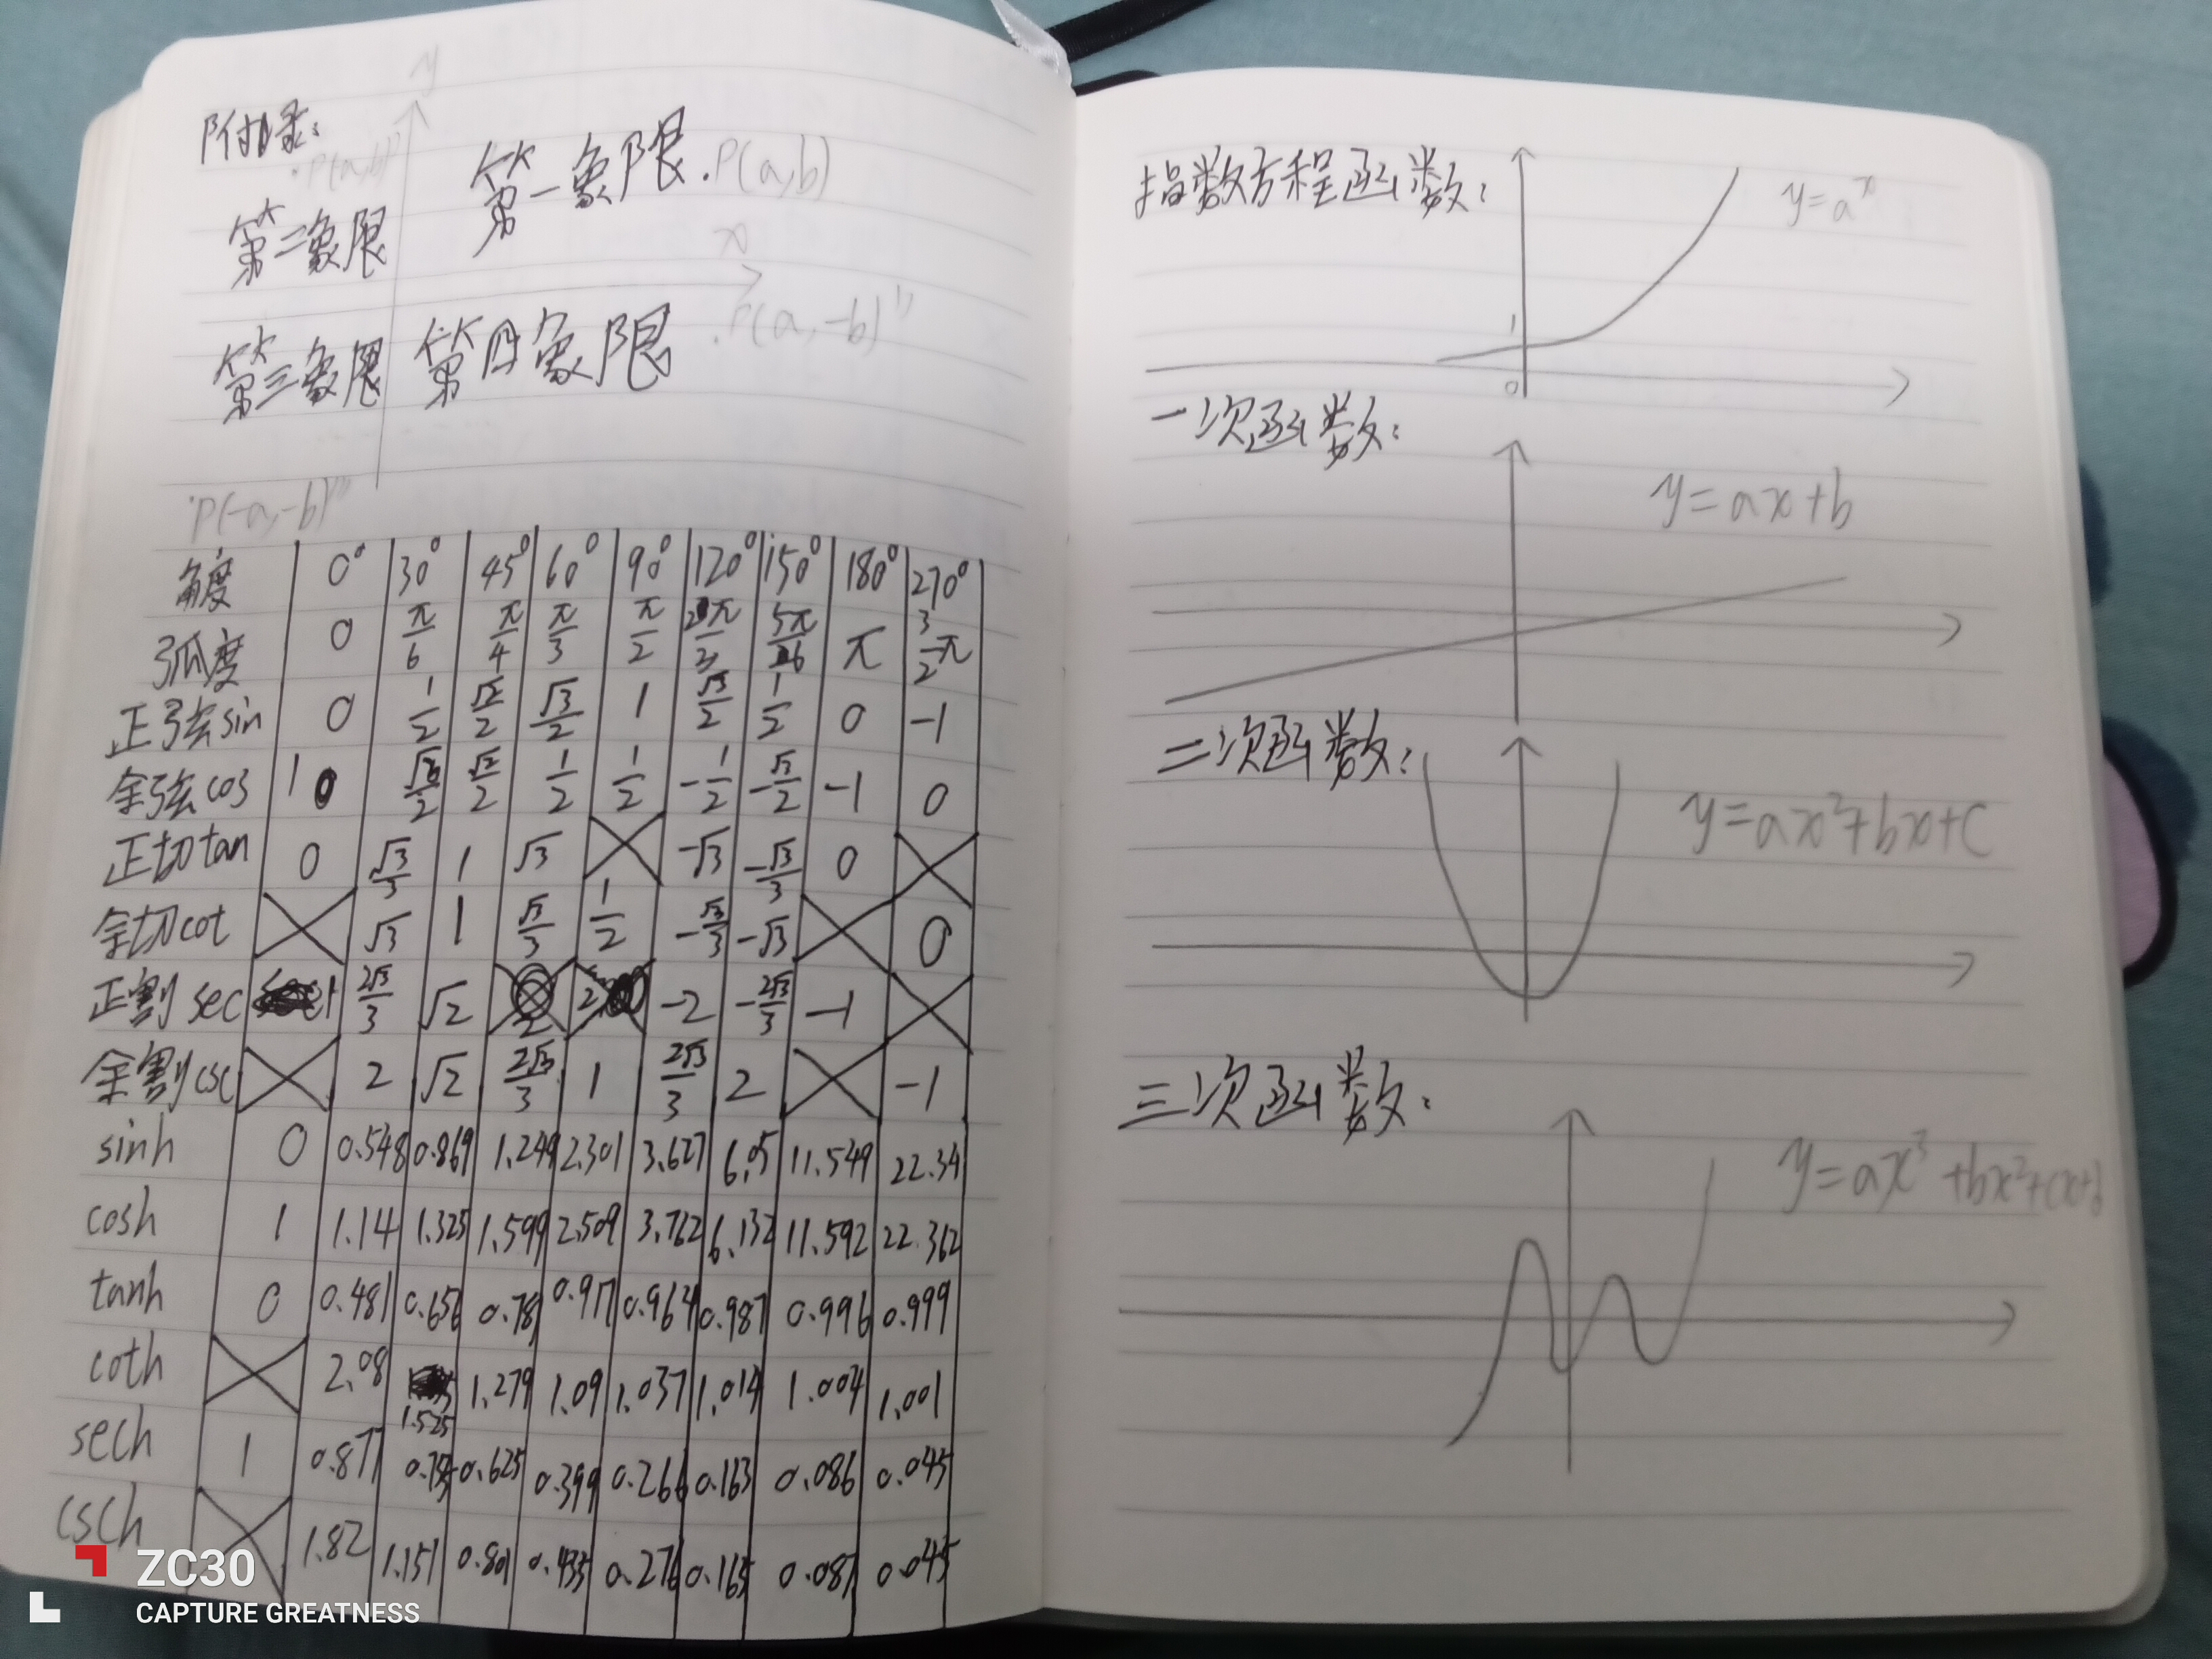 y
附录:
P(a,b)'
第一象限 .P(a,b)
第二象限
x
.P(a,-b)''
第三象限 第四象限
.P(-a,-b)'''
角度 0° 30° 45° 60° 90° 120° 150° 180° 270°
弧度 0 π/6 π/4 π/3 π/2 2π/3 5π/6 π 3/2π
正弦sin 0 1/2 √2/2 √3/2 1 √3/2 1/2 0 -1
余弦cos 1 √3/2 √2/2 1/2 1/2 -1/2 -√3/2 -1 0
正切tan 0 √3/3 1 √3 -√3 -√3/3 0
余切cot √3 1 √3/3 1/2 -√3/3 -√3 0
正割sec 1 2√3/3 √2 2 -2 -2√3/3 -1
余割csc 2 √2 2√3/3 1 2√3/3 2 -1
sinh 0 0.548 0.869 1.249 2.301 3.627 6.05 11.549 22.34
cosh 1 1.14 1.325 1.599 2.509 3.762 6.132 11.592 22.362
tanh 0 0.481 0.656 0.781 0.917 0.964 0.987 0.996 0.999
coth 2.08 1.525 1.279 1.09 1.037 1.014 1.004 1.001
sech 1 0.877 0.625 0.399 0.266 0.163 0.086 0.045
csch 1.82 1.151 0.801 0.435 0.276 0.165 0.087 0.045
ZC30
CAPTURE GREATNESS
指数方程函数:
y=aˣ
1
0
一次函数:
y=ax+b
二次函数:
y=ax²+bx+c
三次函数:
y=ax³+bx²+cx+